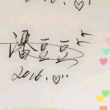 潘豆豆
2016.